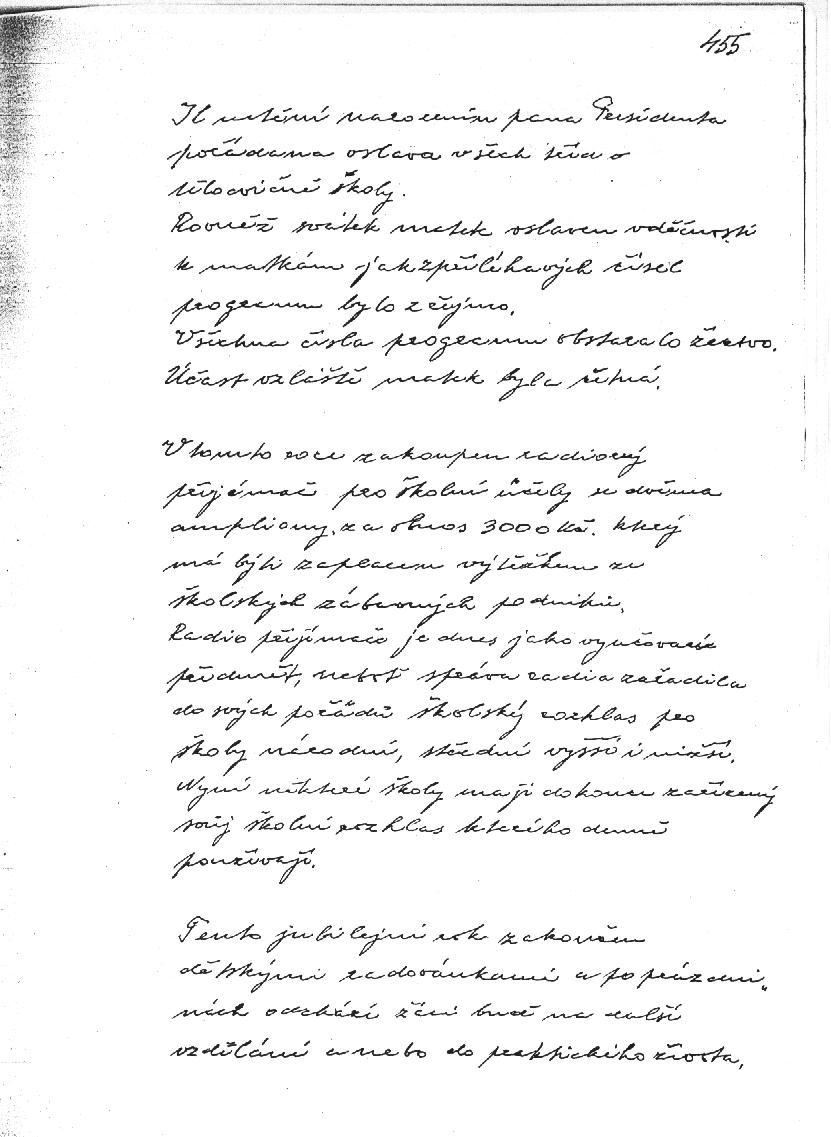 455
K uctění narozenin pana Presidenta
pořádana oslava všech tříd o
tělocvičně školy.
Rovněž svátek matek oslaven vděčností
k matkám jak z přiléhavých čísel
programu bylo zřejmo.
Všechna čísla programu obstaralo žactvo.
Účast vzláště matek byla četná.
V tomto roce zakoupen radiový
přijímač pro školní účely se dvěma
ampliony, za obnos 3000 Kč. který
má býti zaplacen výtěžkem ze
školských zábavných podniků.
Radio přijímače je dnes jako vyučovacím
předmět, neboť správa radia zařadila
do svých pořadů školský rozhlas pro
školy národní, střední vyšší i nižší.
Nyní některé školy mají dokonce zařízený
svůj školní rozhlas kterého denně
používají.
Tento jubilejní rok zakončen
dětskými radovánkami a po prázdni„
nách odchází žáci buď na další
vzdělání a nebo do praktického života.